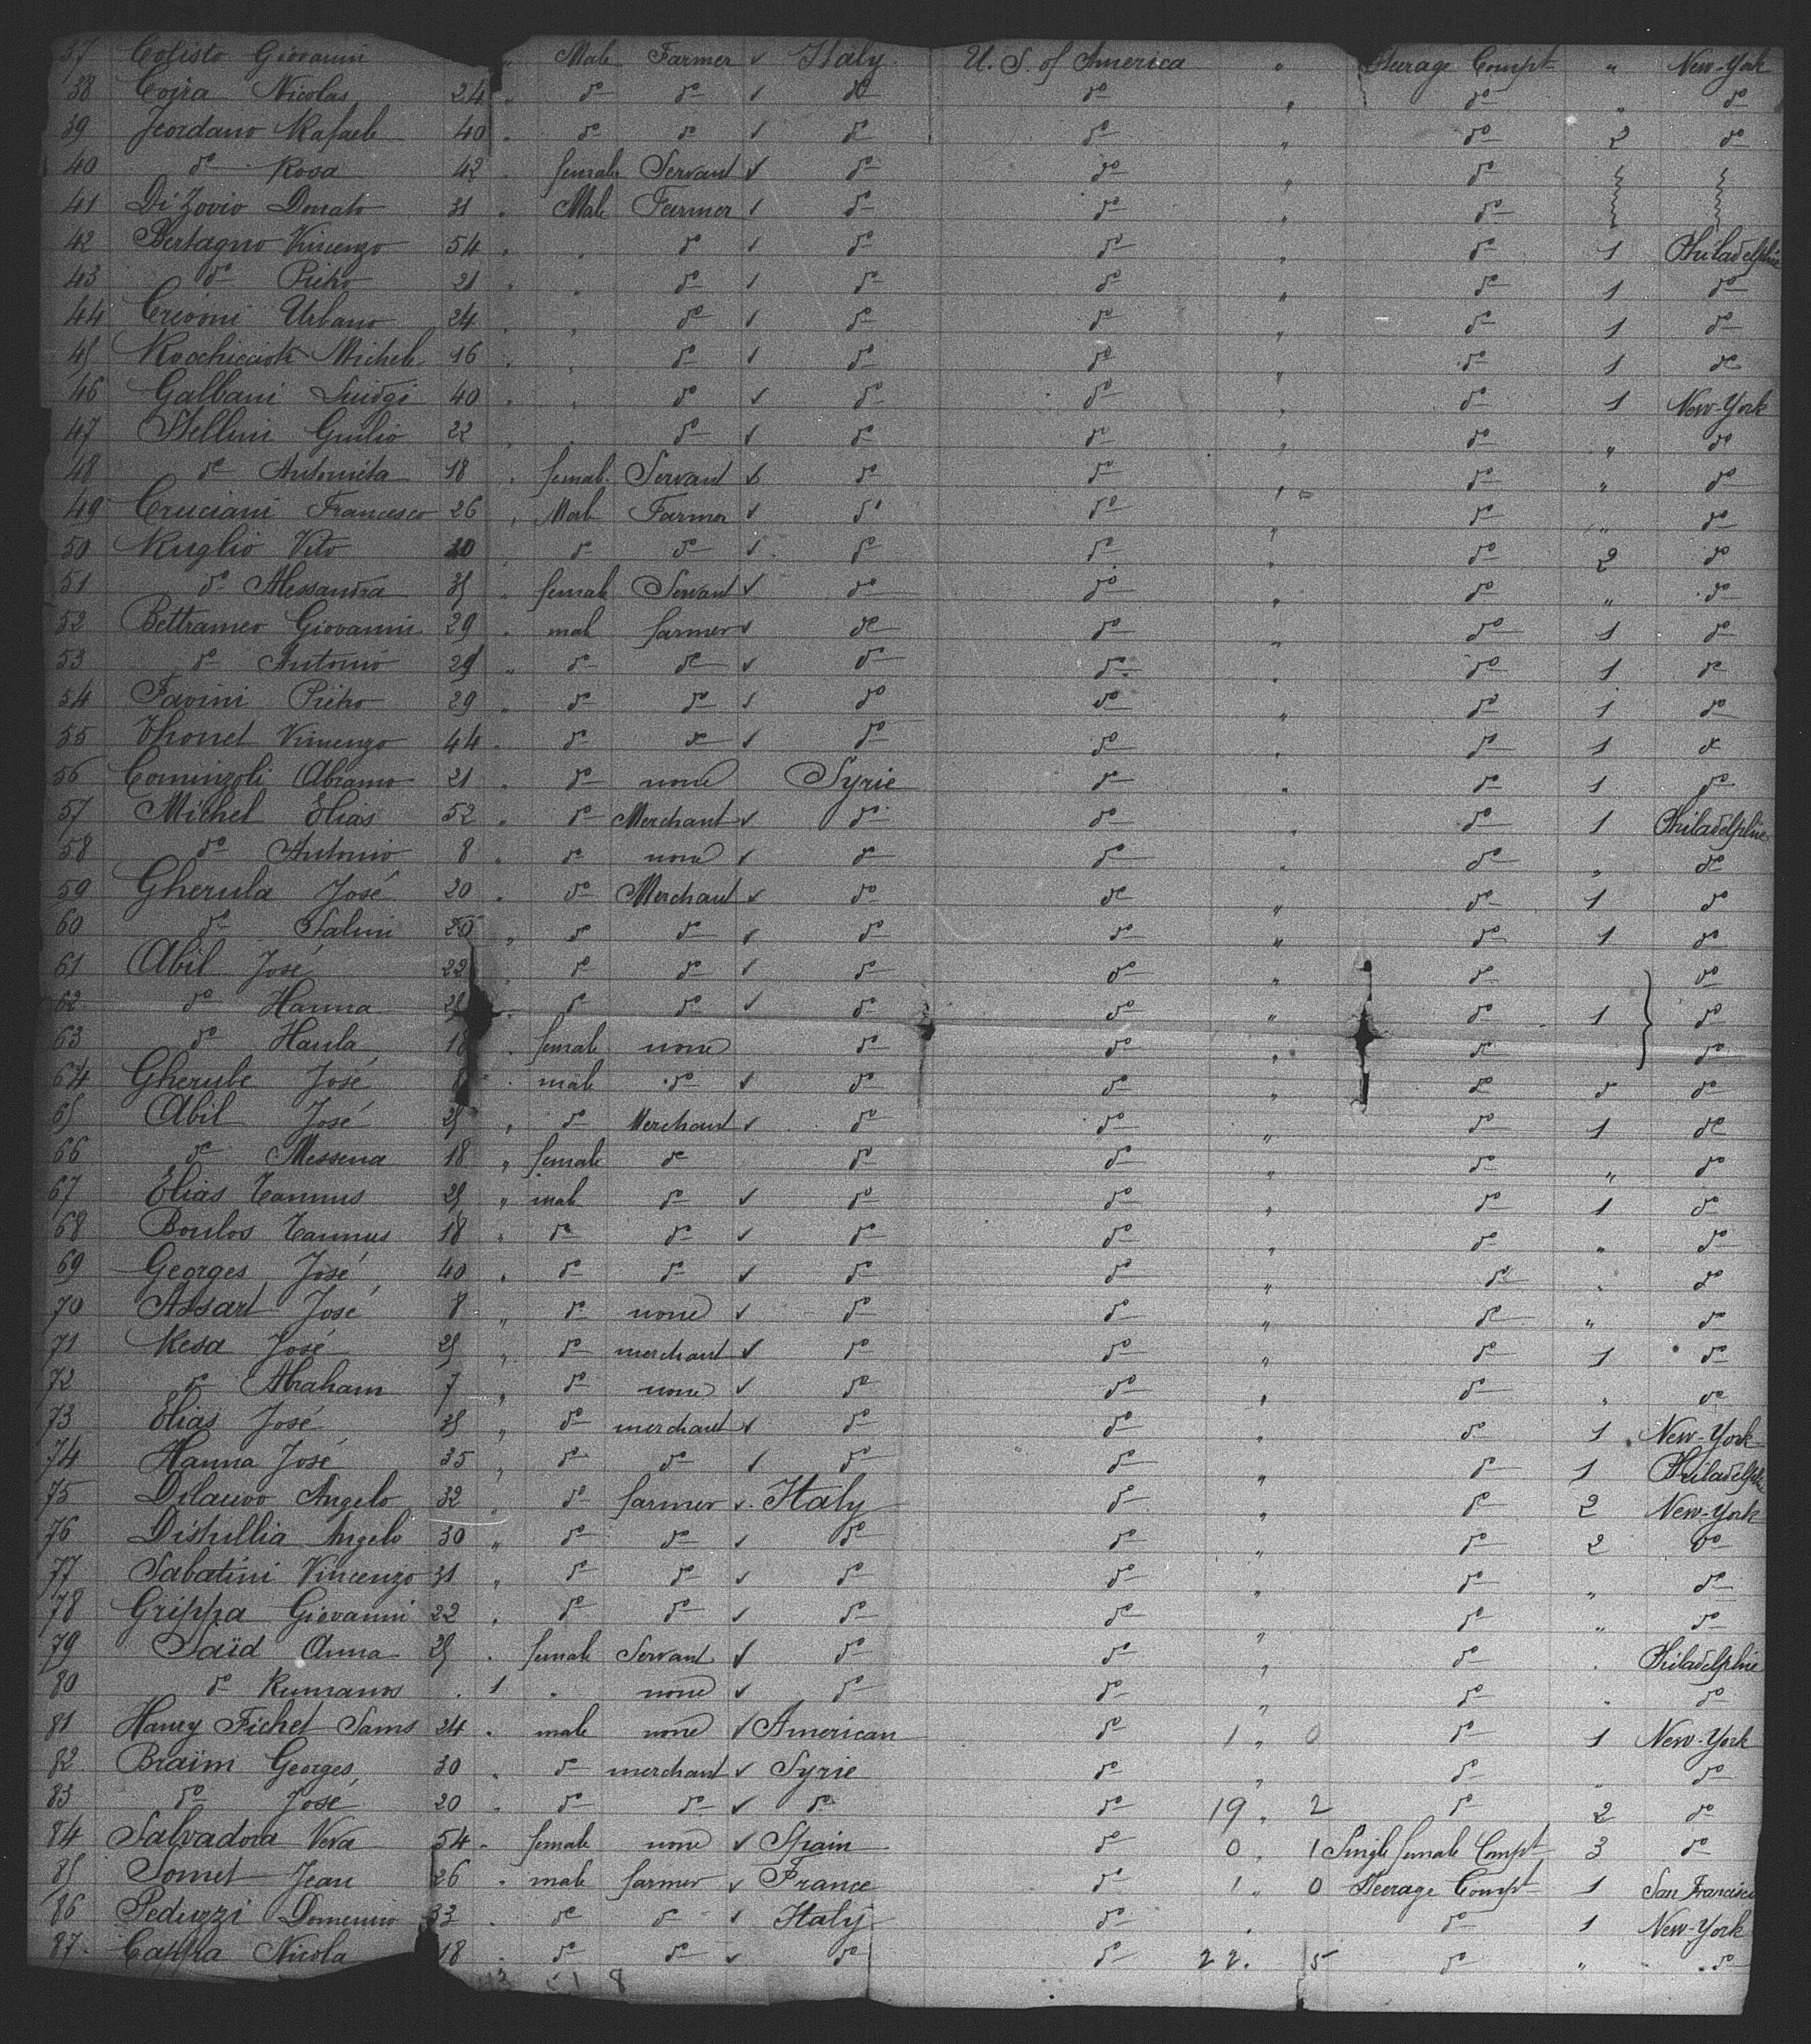 37 Colisto Giovanni " Male Farmer ✓ Italy U. S. of America " Steerage Compt " New-York
38 Coira Nicolas 24 " do do ✓ do do " do " do
39 Jeordano Rafaele 40 " do do ✓ do do " do 2 do
40 do Rosa 42 " female Servant ✓ do do " do
41 Di Zovio Donato 31 " Male Farmer ✓ do do " do
42 Bertagno Vincenzo 54 " " do ✓ do do " do 1 Philadelphie
43 do Pietro 21 " " do ✓ do do " do 1 do
44 Crivoni Urbano 24 " " do ✓ do do " do 1 do
45 Michele 16 " " do ✓ do do " do 1 do
46 Galbani Luidgi 40 " " do ✓ do do " do 1 New-York
47 Stellini Guilio 22 " " do ✓ do do " do " do
48 do Antonieta 18 " female Servant ✓ do do " do " do
49 Cruciani Francesco 26 " Male Farmer ✓ do do " do " do
50 Ruglio Vito 30 " do do ✓ do do " do 2 do
51 do Alessandra 35 " female Servant ✓ do do " do " do
52 Bettrameo Giovanni 29 " male farmer ✓ do do " do 1 do
53 do Antonio 25 " do do ✓ do do " do 1 do
54 Favini Pietro 29 " do do ✓ do do " do 1 do
55 Thonet Vincenzo 44 " do do ✓ do do " do 1 do
56 Cominzoli Abramo 21 " do none Syrie do " do 1 do
57 Michel Elias 52 " do Merchant ✓ do do " do 1 Philadelphie
58 do Antonio 8 " do none ✓ do do " do " do
59 Gherula José 20 " do Merchant ✓ do do " do 1 do
60 do Salim 20 " do do ✓ do do " do 1 do
61 Abil José 22 " do do ✓ do do " do do
62 do Hanna 25 " do do ✓ do do " do 1 do
63 do Haula 18 " female none do do " do do
64 Gherube José " male do ✓ do do " do " do
65 Abil José 25 " do Merchant ✓ do do " do 1 do
66 do Messena 18 " female do do do " do " do
67 Elias Tannus 25 " male do ✓ do do " do 1 do
68 Boulos Tannus 18 " do do ✓ do do " do " do
69 Georges José 40 " do do ✓ do do " do " do
70 Assart José 8 " do none ✓ do do " do " do
71 Resa José 25 " do merchant ✓ do do " do 1 do
72 do Abraham 7 " do none ✓ do do " do " do
73 Elias José 35 " do merchant ✓ do do " do 1 New-York
74 Hanna José 35 " do do ✓ do do " do 1 Philadelphie
75 Dilauvo Angelo 32 " do farmer ✓ Italy do " do 2 New-York
76 Distillia Angelo 30 " do do ✓ do do " do 2 do
77 Sabatini Vincenzo 31 " do do ✓ do do " do " do
78 Grippa Giovanni 22 " do do ✓ do do " do " do
79 Saïd Anna 25 " female Servant ✓ do do " do Philadelphie
80 do Rumanos " 1 " none ✓ do do " do " do
81 Henry Fichet Sams 24 " male none ✓ American do 1 " 0 do 1 New-York
82 Braïm Georges 30 " do merchant ✓ Syrie do " do " do
83 do José 20 " do do ✓ do do 19 " 2 do 2 do
84 Salvadora Vera 54 " female none ✓ Spain do 0 " 1 Single female Compt 3 do
85 Somet Jean 26 " male farmer ✓ France do 1 " 0 Steerage Compt 1 San Francisco
86 Peduzzi Domenino 33 " do do ✓ Italy do " do 1 New-York
87 Cappa Nicola 18 " do do ✓ do do 22 " 5 do " do